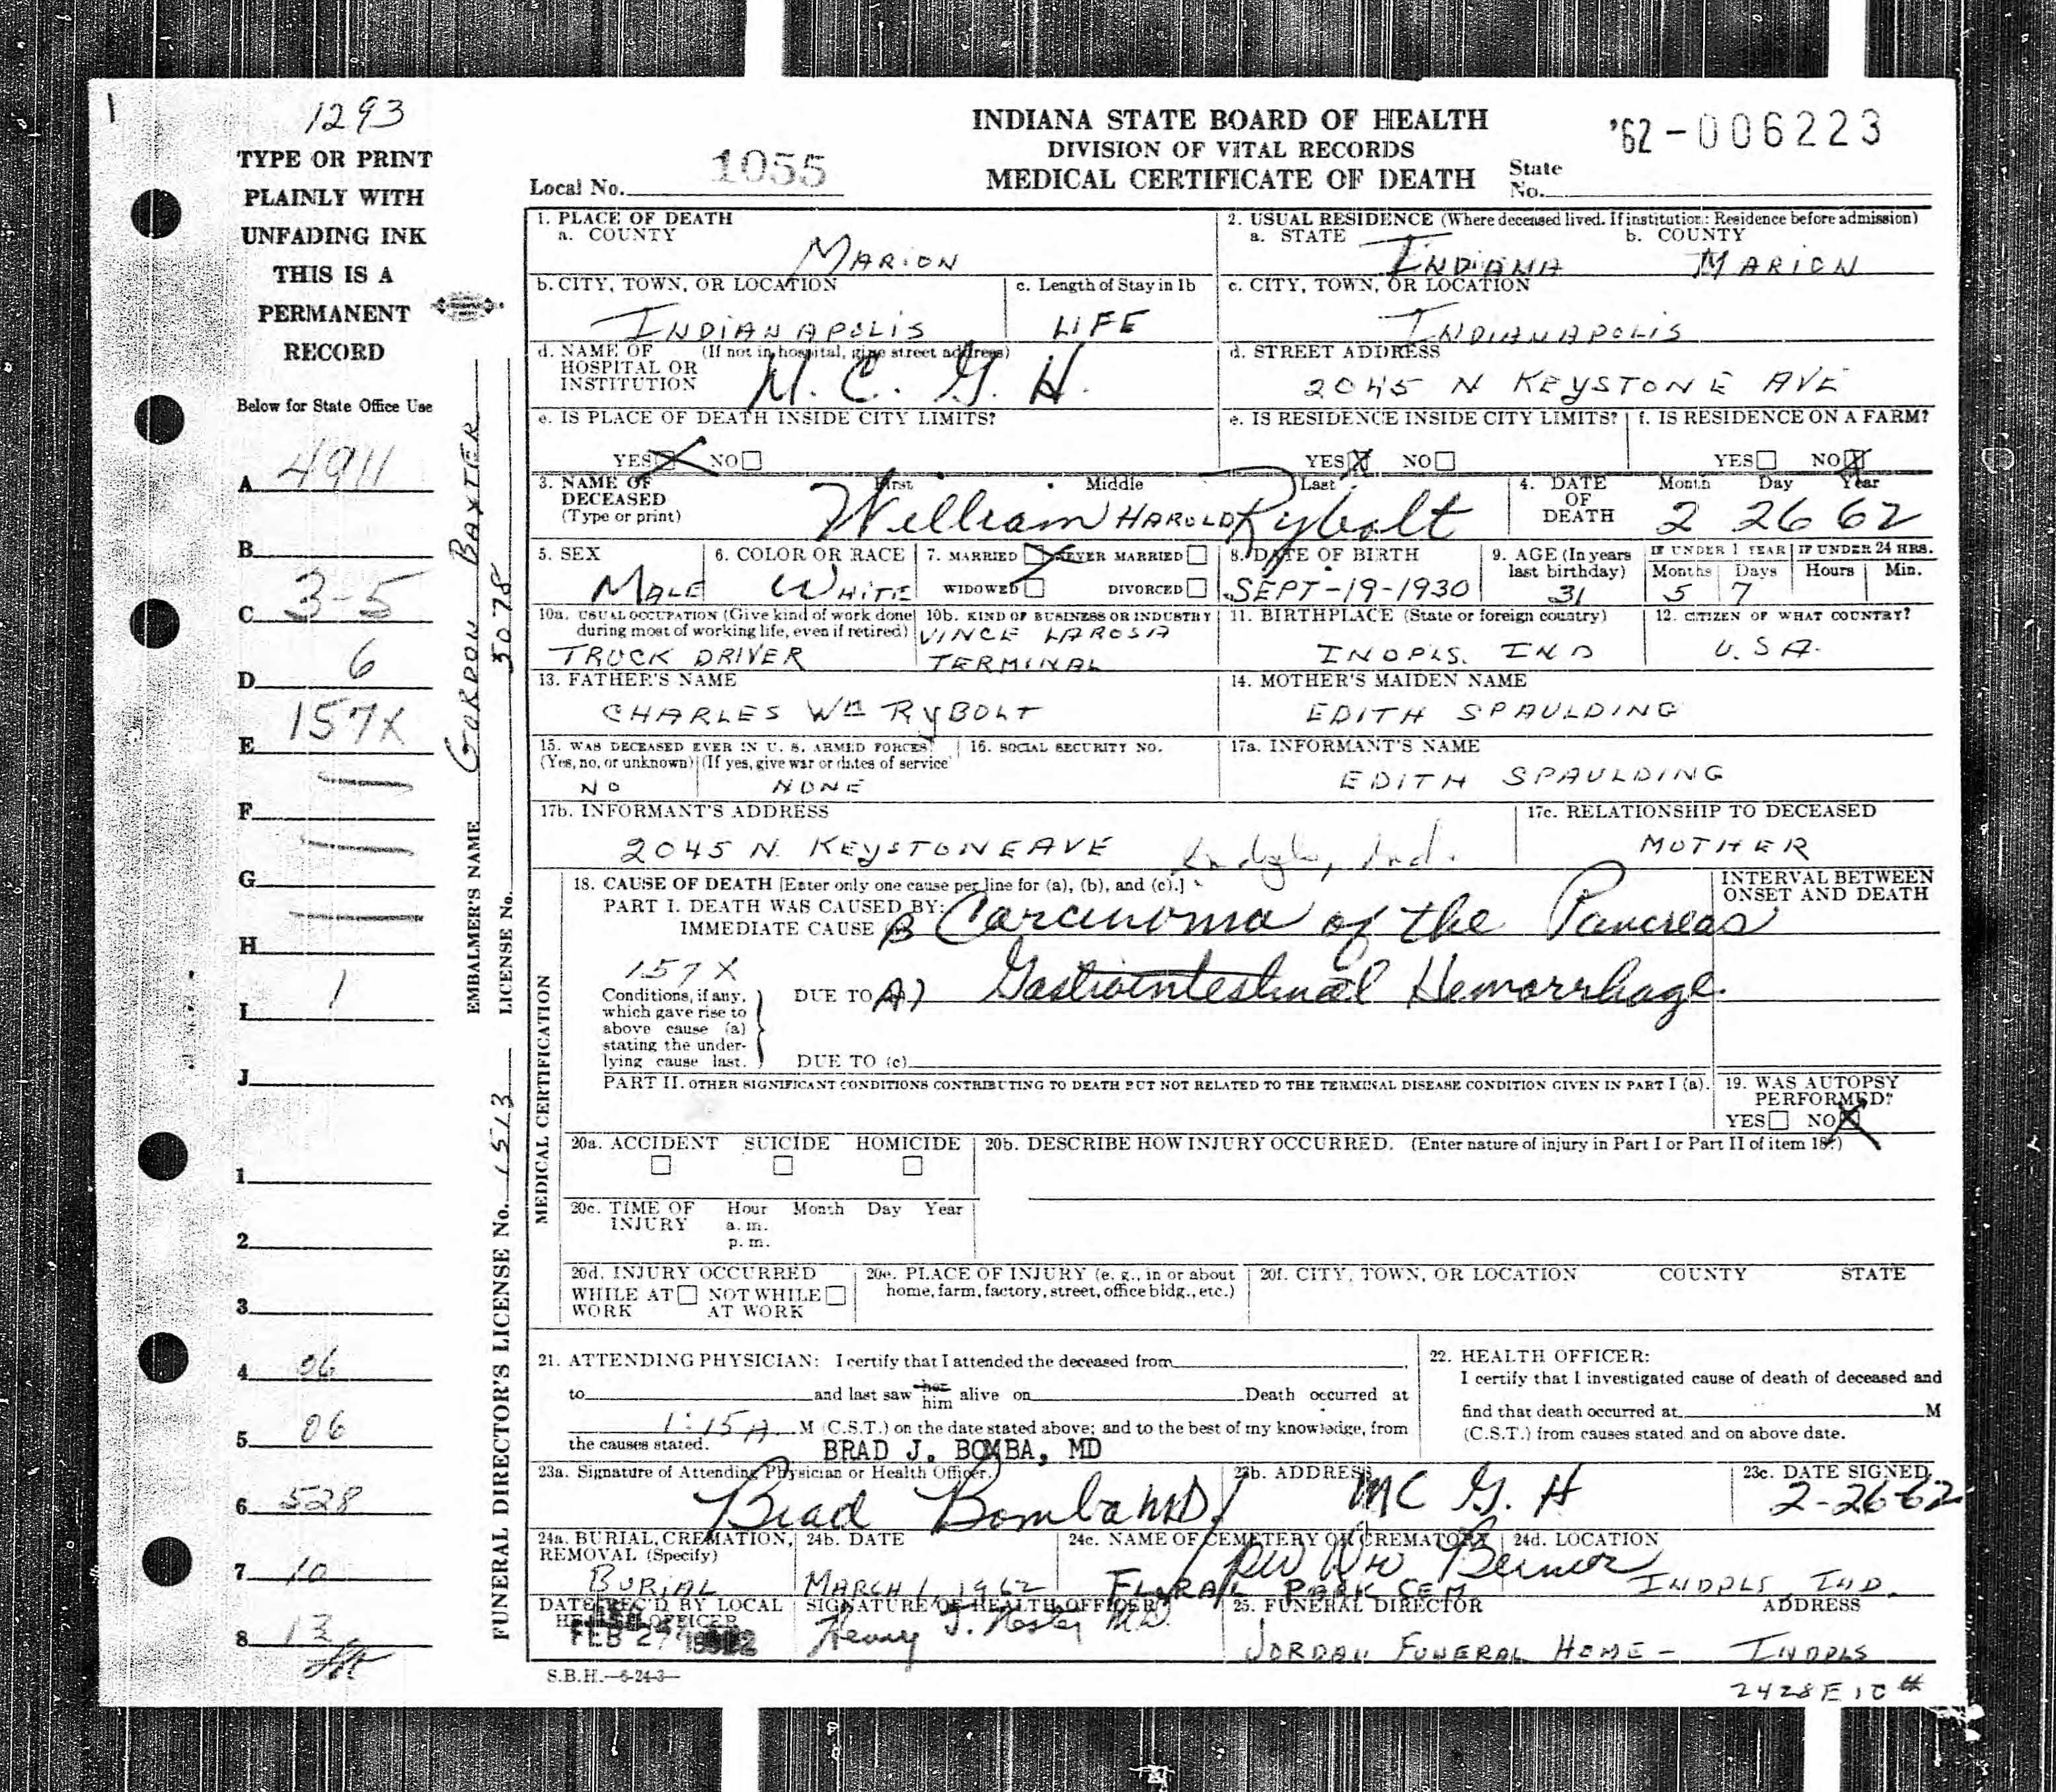 1
1293
TYPE OR PRINT
PLAINLY WITH
UNFADING INK
THIS IS A
PERMANENT
RECORD
Below for State Office Use
A 4911
B
C 3-5
D 6
E 157X
F
G
H
I 1
J
1
2
3
4 06
5 06
6 528
7 10
8 13
EMBALMER'S NAME GORDON BAXTER
LICENSE No. 5078
FUNERAL DIRECTOR'S LICENSE No. 1513
INDIANA STATE BOARD OF HEALTH
DIVISION OF VITAL RECORDS
MEDICAL CERTIFICATE OF DEATH
Local No. 1055
State No. '62-006223
1. PLACE OF DEATH
a. COUNTY
MARION
2. USUAL RESIDENCE (Where deceased lived. If institution: Residence before admission)
a. STATE INDIANA b. COUNTY MARION
b. CITY, TOWN, OR LOCATION
INDIANAPOLIS
c. Length of Stay in 1b
LIFE
c. CITY, TOWN, OR LOCATION
INDIANAPOLIS
d. NAME OF HOSPITAL OR INSTITUTION (If not in hospital, give street address)
M. C. G. H.
d. STREET ADDRESS
2045 N KEYSTONE AVE
e. IS PLACE OF DEATH INSIDE CITY LIMITS?
YES NO
e. IS RESIDENCE INSIDE CITY LIMITS?
YES X NO
f. IS RESIDENCE ON A FARM?
YES NO X
3. NAME OF DECEASED (Type or print) First Middle Last
William HAROLD Rybolt
4. DATE OF DEATH Month Day Year
2 26 62
5. SEX
MALE
6. COLOR OR RACE
WHITE
7. MARRIED NEVER MARRIED
WIDOWED DIVORCED
8. DATE OF BIRTH
SEPT-19-1930
9. AGE (In years last birthday)
31
IF UNDER 1 YEAR IF UNDER 24 HRS.
Months Days Hours Min.
5 7
10a. USUAL OCCUPATION (Give kind of work done during most of working life, even if retired)
TRUCK DRIVER
10b. KIND OF BUSINESS OR INDUSTRY
VINCE LAROSA
TERMINAL
11. BIRTHPLACE (State or foreign country)
INDPLS. IND
12. CITIZEN OF WHAT COUNTRY?
U.S.A.
13. FATHER'S NAME
CHARLES WM RYBOLT
14. MOTHER'S MAIDEN NAME
EDITH SPAULDING
15. WAS DECEASED EVER IN U. S. ARMED FORCES?
(Yes, no, or unknown) (If yes, give war or dates of service)
NO NONE
16. SOCIAL SECURITY NO.
17a. INFORMANT'S NAME
EDITH SPAULDING
17b. INFORMANT'S ADDRESS
2045 N. KEYSTONE AVE Indpls, Ind.
17c. RELATIONSHIP TO DECEASED
MOTHER
MEDICAL CERTIFICATION
18. CAUSE OF DEATH [Enter only one cause per line for (a), (b), and (c).]
INTERVAL BETWEEN ONSET AND DEATH
PART I. DEATH WAS CAUSED BY:
IMMEDIATE CAUSE B Carcinoma of the Pancreas
157X
Conditions, if any, which gave rise to above cause (a) stating the underlying cause last.
DUE TO A) Gastrointestinal Hemorrhage.
DUE TO (c)
PART II. OTHER SIGNIFICANT CONDITIONS CONTRIBUTING TO DEATH BUT NOT RELATED TO THE TERMINAL DISEASE CONDITION GIVEN IN PART I (a).
19. WAS AUTOPSY PERFORMED?
YES NO X
20a. ACCIDENT SUICIDE HOMICIDE
20b. DESCRIBE HOW INJURY OCCURRED. (Enter nature of injury in Part I or Part II of item 18.)
20c. TIME OF INJURY Hour Month Day Year
a. m.
p. m.
20d. INJURY OCCURRED
WHILE AT WORK NOT WHILE AT WORK
20e. PLACE OF INJURY (e. g., in or about home, farm, factory, street, office bldg., etc.)
20f. CITY, TOWN, OR LOCATION COUNTY STATE
21. ATTENDING PHYSICIAN: I certify that I attended the deceased from
to and last saw her him alive on Death occurred at
1:15 A M (C.S.T.) on the date stated above; and to the best of my knowledge, from
the causes stated. BRAD J. BOMBA, MD
22. HEALTH OFFICER:
I certify that I investigated cause of death of deceased and
find that death occurred at M
(C.S.T.) from causes stated and on above date.
23a. Signature of Attending Physician or Health Officer.
Brad Bomba MD
23b. ADDRESS
MC G. H
23c. DATE SIGNED
2-26-62
24a. BURIAL, CREMATION, REMOVAL (Specify)
BURIAL
24b. DATE
MARCH 1, 1962
24c. NAME OF CEMETERY OR CREMATORY
FLORAL PARK CEM
24d. LOCATION
INDPLS, IND.
DATE REC'D BY LOCAL HEALTH OFFICER
FEB 27 1962
SIGNATURE OF HEALTH OFFICER
Henry J. Nester M.D.
25. FUNERAL DIRECTOR ADDRESS
JORDAN FUNERAL HOME - INDPLS
2428 E 10
S.B.H.—6-24-3—